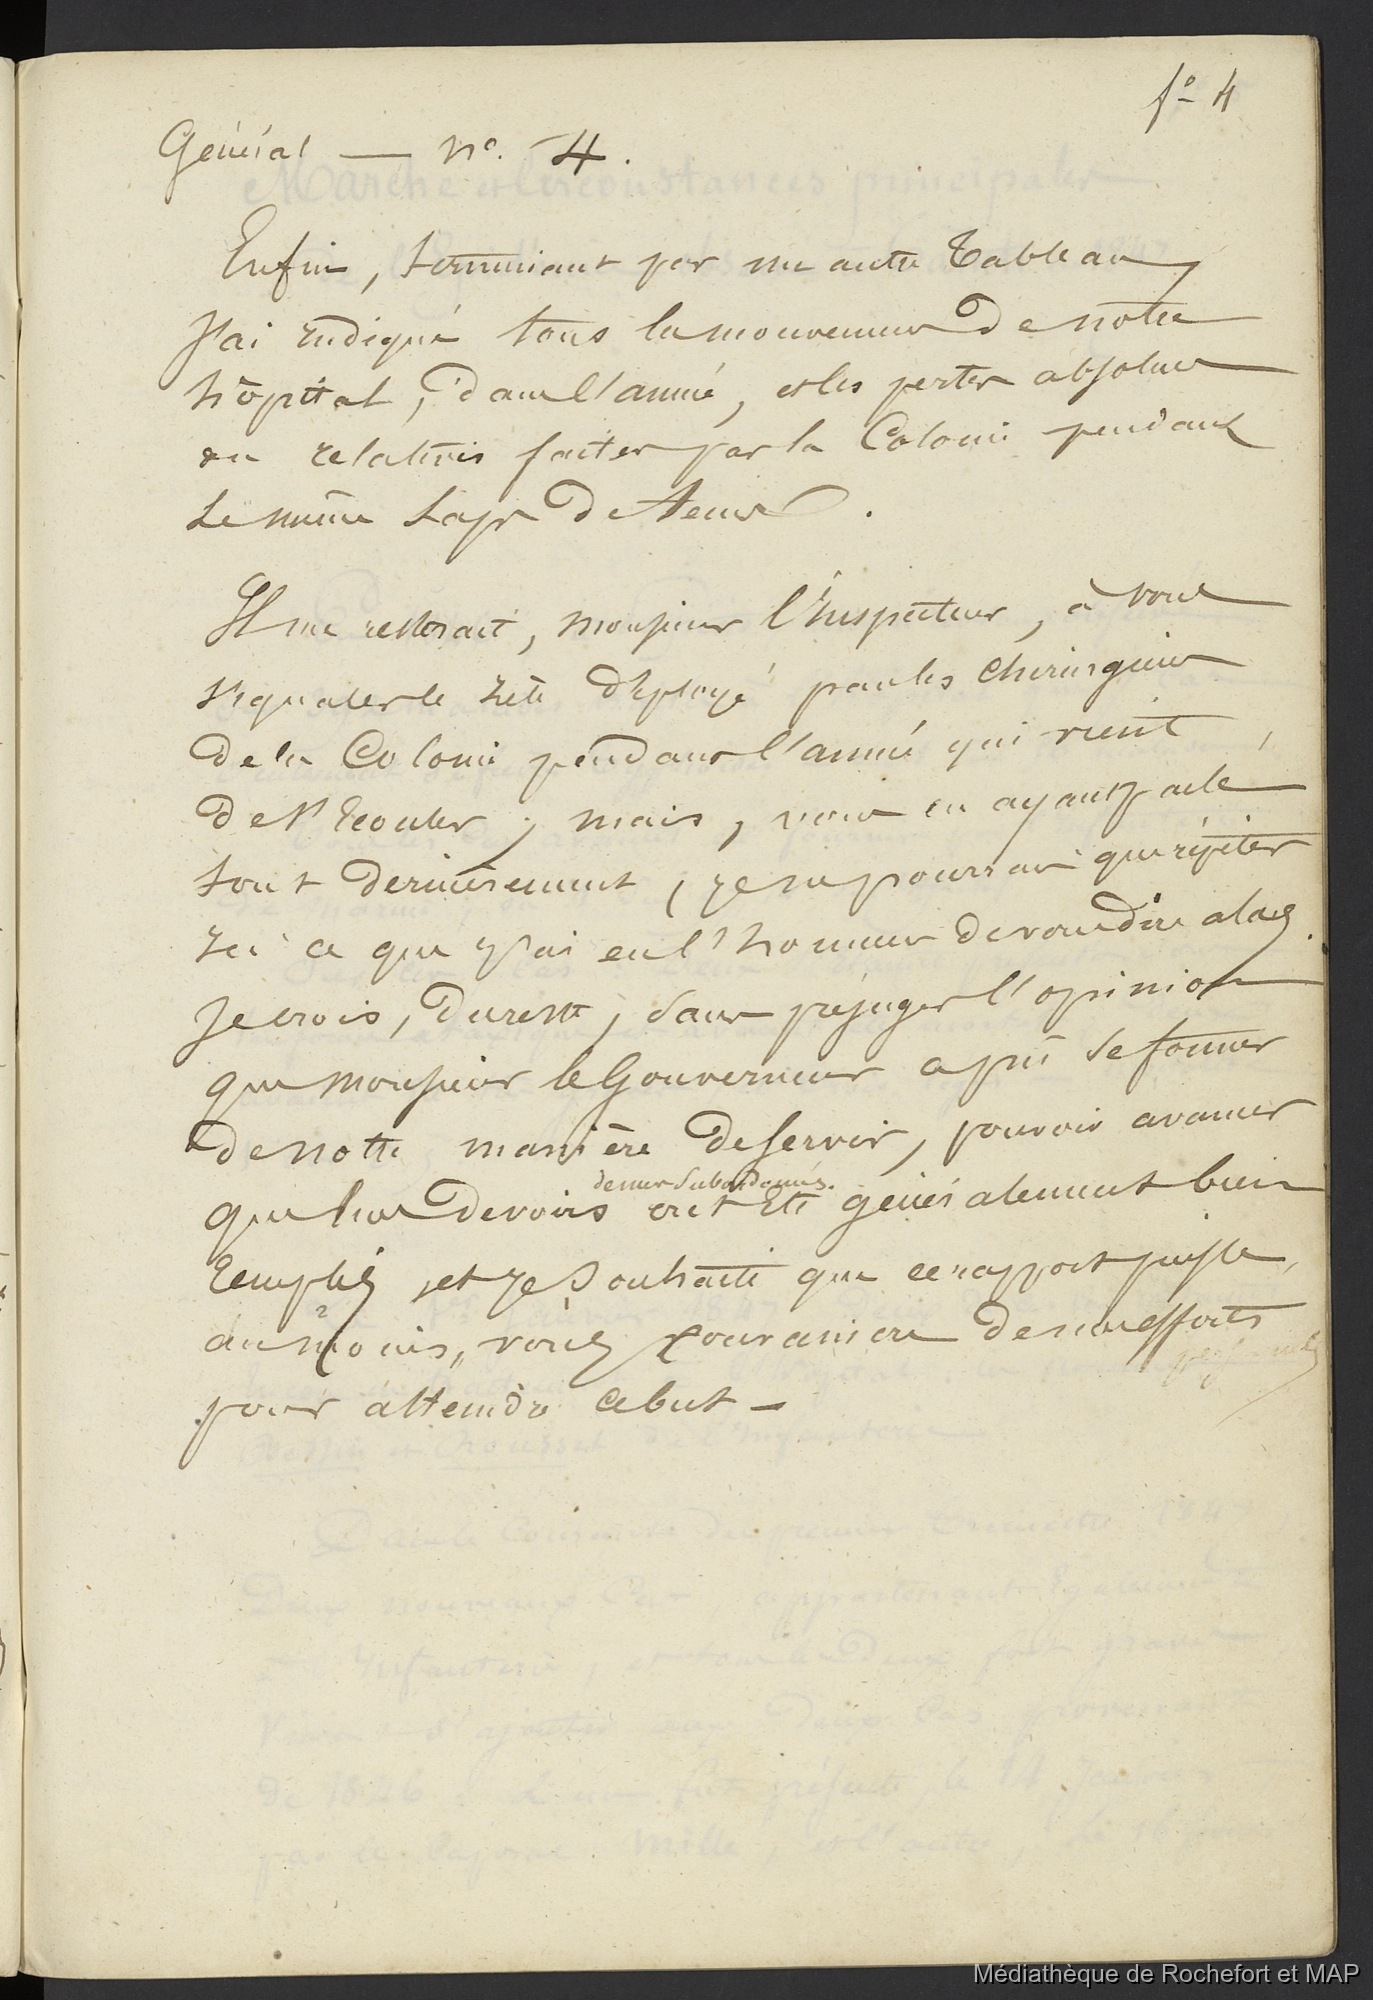 fo 4
Général — No. 4.
Enfin, terminant par un autre Tableau,
J'ai indiqué tous les mouvemens de notre
hôpital, dans l'année, et les pertes absolues
ou relatives faites par la Colonie pendant
le même laps de tems.
Il me resterait, Monsieur l'Inspecteur, à vous
signaler le zèle déployé par les chirurgiens
de la Colonie pendant l'année qui vient
de s'écouler; mais, vous en ayant parlé
tout dernièrement, je ne pourrais que répéter
ici ce que j'ai eu l'honneur de vous dire alors.
Je crois, du reste, sans préjuger l'opinion
que Monsieur le Gouverneur a pu se former
de notre manière de servir, pouvoir avancer
de nos subordonnés.
que les devoirs ont été généralement bien
remplis, et je souhaite que ce rapport puisse,
au moins, vous convaincre de nos efforts
pour atteindre ce but —
Médiathèque de Rochefort et MAP